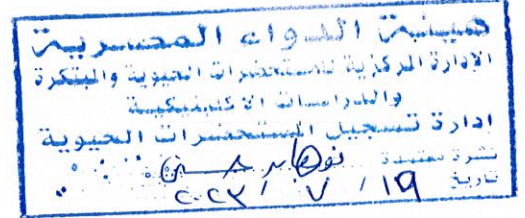 هيئة الدواء المصرية
الإدارة المركزية للمستحضرات الحيوية والمبتكرة
والدراسات الاكلينيكية
ادارة تسجيل المستحضرات الحيوية
نشرة معتمدة
تاريخ ١٩ / ٧ / ٢٠٢٣